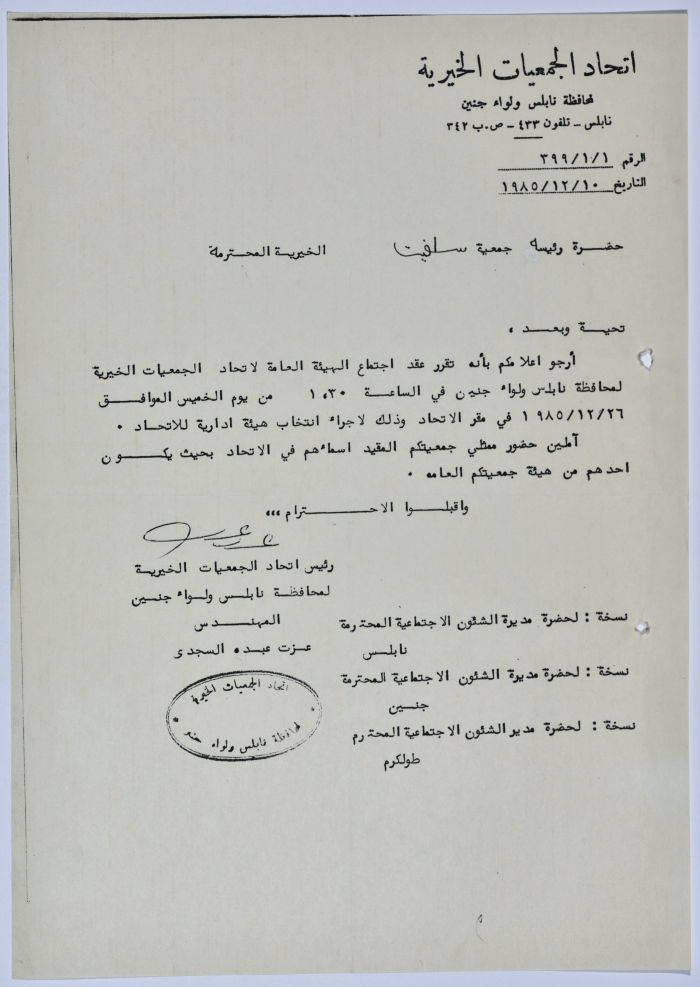 اتحاد الجمعيات الخيرية
لمحافظة نابلس ولواء جنين
نابلس ـ تلفون ٤٣٣ ـ ص.ب ٣٤٢
الرقم ٣٩٩/١/١
التاريخ ١٩٨٥/١٢/١٠
حضرة رئيسة جمعية سلفيت الخيرية المحترمة
تحية وبعد ،
أرجو اعلامكم بأنه تقرر عقد اجتماع الهيئة العامة لاتحاد الجمعيات الخيرية
لمحافظة نابلس ولواء جنين في الساعة ١٠,٣٠ من يوم الخميس الموافق
١٩٨٥/١٢/٢٦ في مقر الاتحاد وذلك لاجراء انتخاب هيئة ادارية للاتحاد .
آملين حضور ممثلي جمعيتكم المقيد اسماءهم في الاتحاد بحيث يكون
احدهم من هيئة جمعيتكم العامه .
واقبلوا الاحترام ،،،
رئيس اتحاد الجمعيات الخيرية
لمحافظة نابلس ولواء جنين
المهندس
عزت عبده السجدى
نسخة : لحضرة مديرة الشئون الاجتماعية المحترمة
نابلس
نسخة : لحضرة مديرة الشئون الاجتماعية المحترمة
جنين
نسخة : لحضرة مدير الشئون الاجتماعية المحترم
طولكرم
اتحاد الجمعيات الخيرية
لمحافظة نابلس ولواء جنين